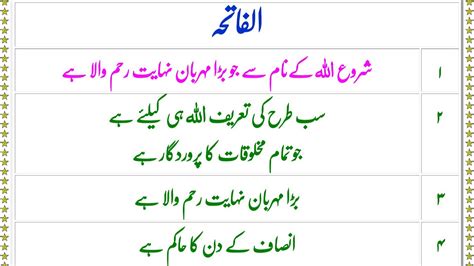 الفاتحہ
۱ شروع الله کے نام سے جو بڑا مہربان نہایت رحم والا ہے
۲ سب طرح کی تعریف الله ہی کیلئے ہے
جو تمام مخلوقات کا پروردگار ہے
۳ بڑا مہربان نہایت رحم والا ہے
۴ انصاف کے دن کا حاکم ہے